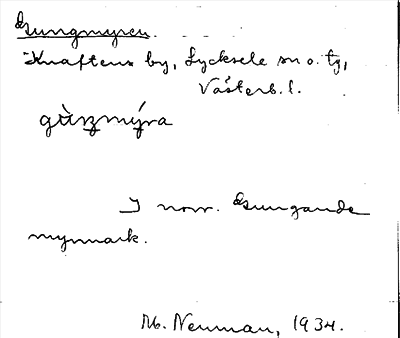 Gungmyren.
Knaftens by, Lycksele sn o. tg,
Västerb. l.
gùŋmýra
I norr. Gungande
myrmark.
M. Neuman, 1934.